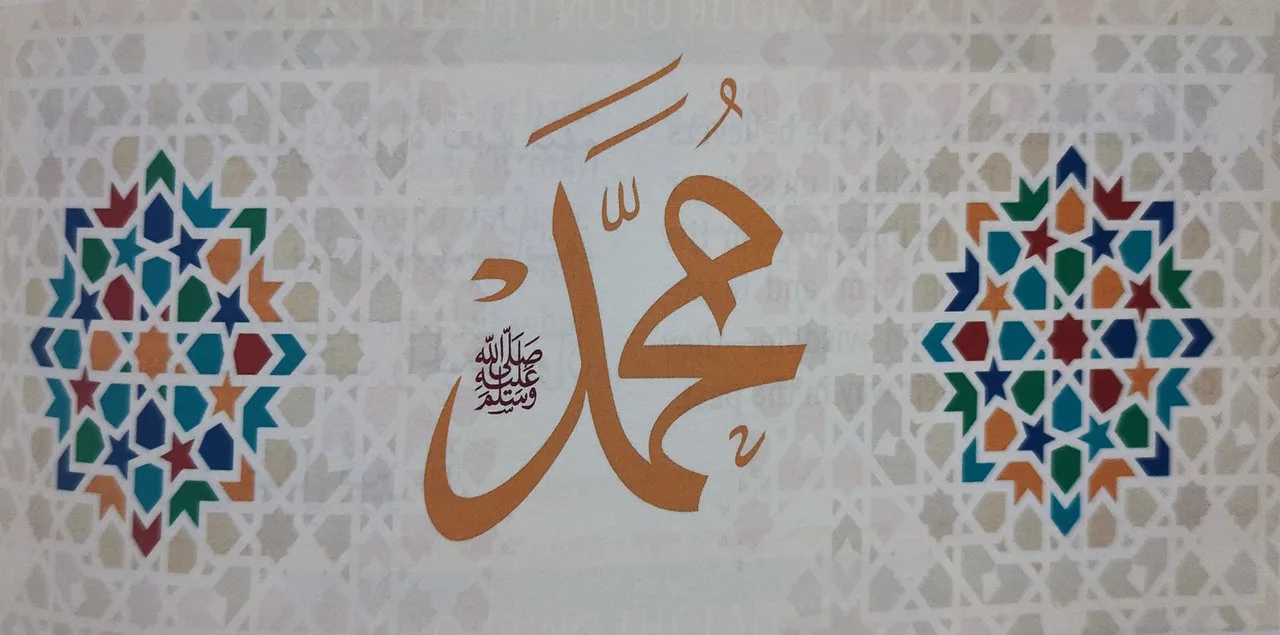 مُحَمَّدٌ
صَلَّى اللّٰه
عَلَيْهِ
وَسَلَّمَ